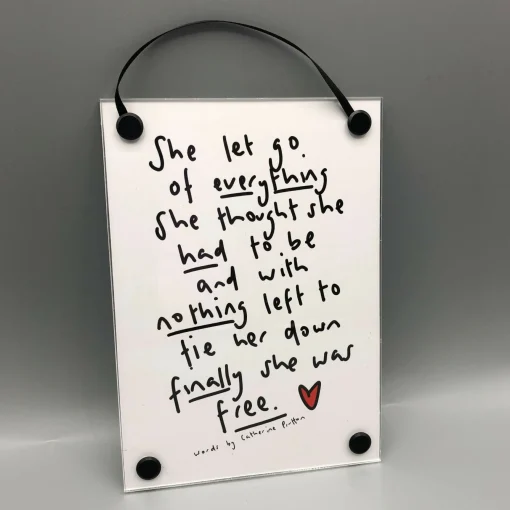 She let go
of everything
she thought she
had to be
and with
nothing left to
tie her down
finally she was
free.
words by Catherine